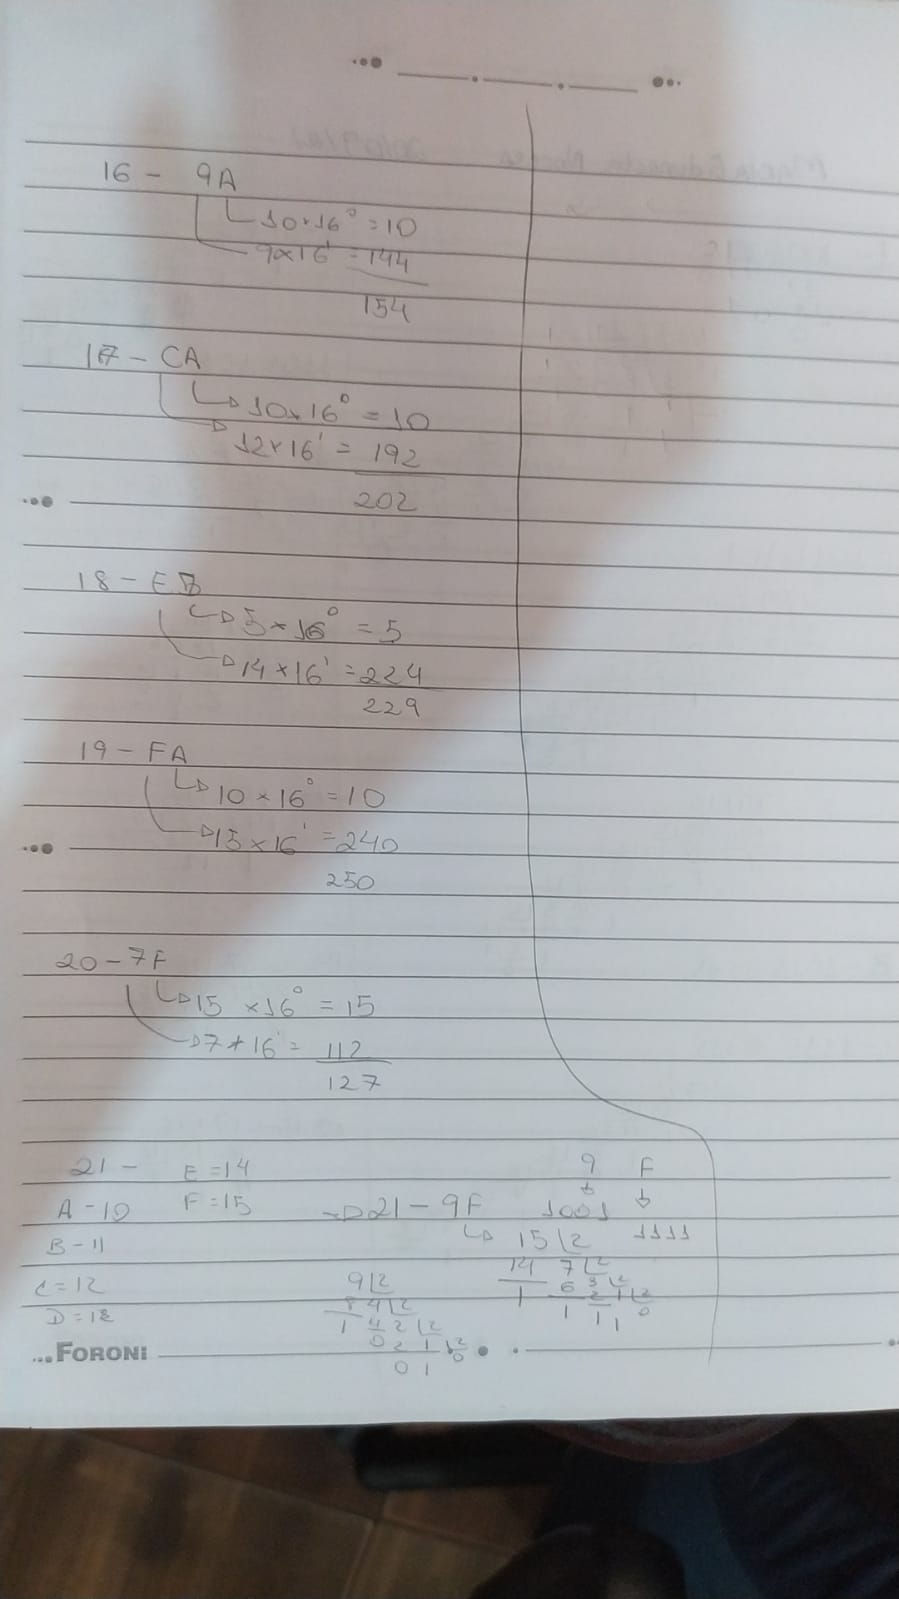 16 - 9A
10×16⁰ = 10
9×16¹ = 144
154
17 - CA
10×16⁰ = 10
12×16¹ = 192
202
18 - E5
5×16⁰ = 5
14×16¹ = 224
229
19 - FA
10×16⁰ = 10
15×16¹ = 240
250
20 - 7F
15×16⁰ = 15
7×16¹ = 112
127
21 - E = 14
A - 10 F = 15
B - 11
C = 12
D = 13
21 - 9F
9 F
1001 1111
15 2
14 7 2
1 6 3 2
1 2 1 2
1 1 0
9 2
8 4 2
1 4 2 2
0 2 1 2
0 1 0
FORONI